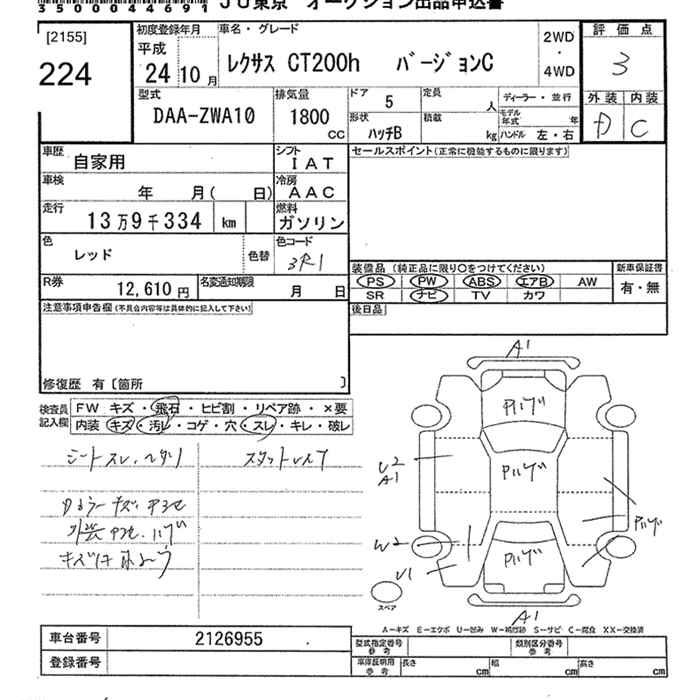 35000044691 JU東京 オークション出品申込書
[2155]
224
初度登録年月
平成
24年10月
車名・グレード
レクサス CT200h バージョンC
2WD
・
4WD
評価点
3
外装 内装
D C
型式
DAA-ZWA10
排気量
1800
CC
ドア 5
形状 ハッチB
定員 人
積載 kg
ディーラー・並行
モデル年式 年
ハンドル 左・右
車歴 自家用
シフト IAT
車検 年 月( 日)
冷房 AAC
走行 13万9千334 km
燃料 ガソリン
色 レッド
色替
色コード 3R1
R券 12,610円
名変通知期限 月 日
セールスポイント(正常に機能するものに限ります)
装備品 (純正品に限り○をつけてください)
PS PW ABS エアB AW
SR ナビ TV カワ
新車保証書
有・無
後日品
注意事項申告欄(不具合内容等は具体的に記入して下さい)
修復歴 有〔箇所 〕
検査員記入欄
FW キズ・飛石・ヒビ割・リペア跡・×要
内装 キズ・汚レ・コゲ・穴・スレ・キレ・破レ
シートスレ、ヘタリ
スタットレス7
A1
Pハゲ
Pハゲ
Pハゲ
Pハゲ
U2
A1
W2
U1
A1
スペア
A-キズ E-エクボ U-凹み W-補修跡 S-サビ C-腐食 XX-交換済
車台番号 2126955
登録番号
型式指定番号 参考
類別区分番号 参考
車庫証明用 参考
長さ cm
幅 cm
高さ cm